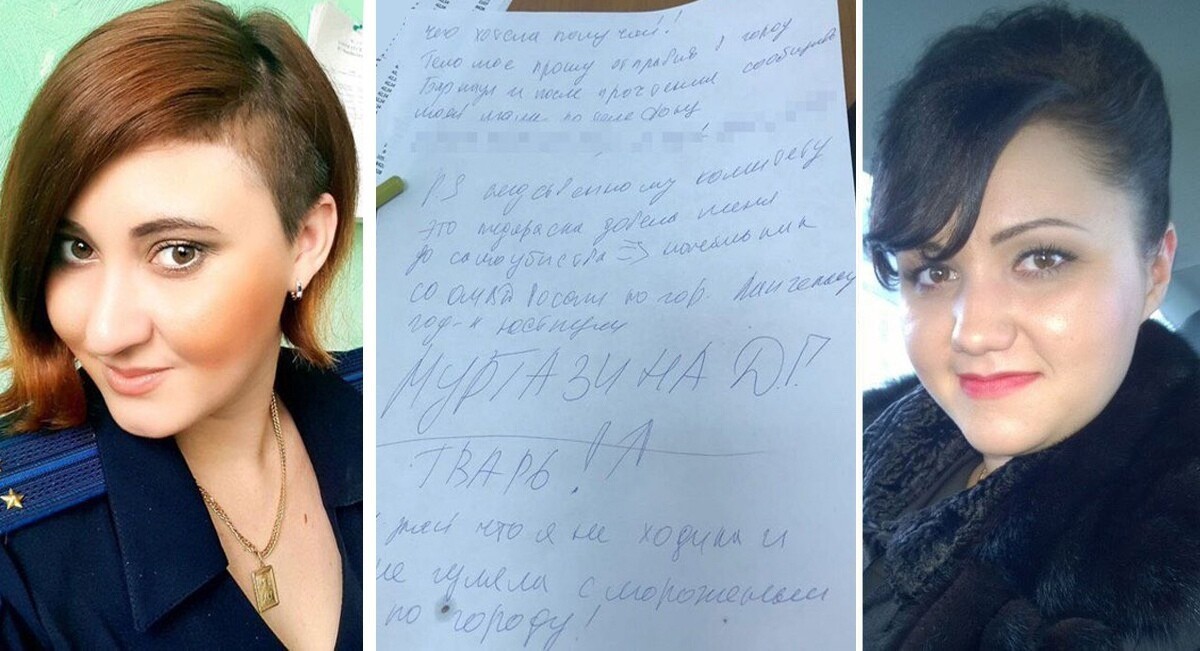 чего хотела получай!!
Тело мое прошу отправить в город
Барнаул и после прочтения сообщить
моей маме по телефону
P.S следственному комитету
это педераска довела меня
до самоубийства => начальник
СО ОМВД России по гор. Лангепасу
под-к юстиции
МУРТАЗИНА Д.Г.
ТВАРЬ!
что я не ходила и
не гуляла с мороженым
по городу!